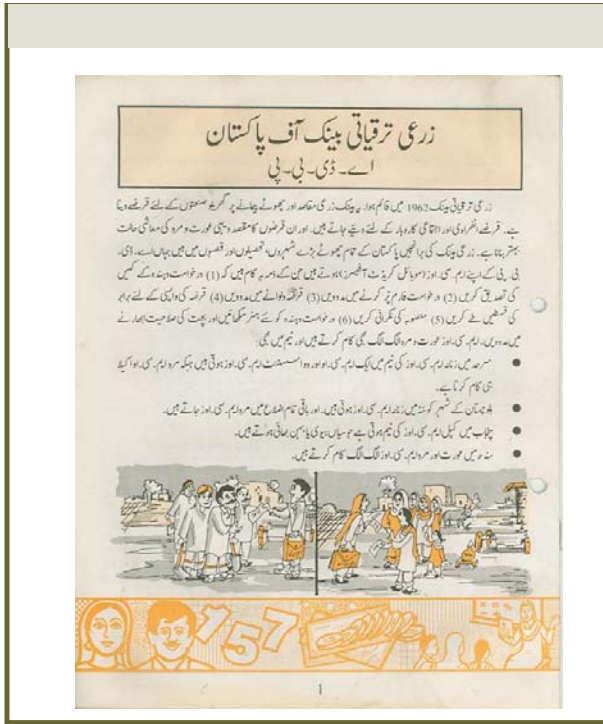 زرعی ترقیاتی بینک آف پاکستان
اے۔ ڈی۔ بی۔ پی
زرعی ترقیاتی بینک 1962 میں قائم ہوا۔ یہ بینک زرعی مقاصد اور چھوٹے پیمانے پر گھریلو صنعتوں کے لئے قرضے دیتا
ہے۔ قرضے انفرادی اور اجتماعی کاروبار کے لئے دیئے جاتے ہیں۔ اور ان قرضوں کا مقصد دیہی عورت و مرد کی معاشی حالت
بہتر بنانا ہے۔ زرعی بینک کی برانچیں پاکستان کے تمام چھوٹے بڑے شہروں، تحصیلوں اور قصبوں میں ہیں جہاں اے۔ ڈی۔
بی۔ پی کے اپنے ایم۔ سی۔ اوز (موبائل کریڈٹ آفیسرز) ہوتے ہیں جن کے ذمہ یہ کام ہیں کہ (1) درخواست دہندہ کے کیس
کی تصدیق کریں (2) درخواست فارم پُر کرنے میں مدد دیں (3) قرضہ دلوانے میں مدد دیں (4) قرضہ کی واپسی کے لئے برابر
کی قسطیں طے کریں (5) منصوبہ کی نگرانی کریں (6) درخواست دہندہ کو نئے ہنر سکھائیں اور بچت کی صلاحیت ابھارنے
میں مدد دیں۔ ایم۔ سی۔ اوز عورت و مرد الگ الگ بھی کام کرتے ہیں اور ٹیم میں بھی:
● سرحد میں زنانہ ایم۔ سی۔ اوز کی ٹیم میں ایک ایم۔ سی۔ او اور دو اسسٹنٹ ایم۔ سی۔ اوز ہوتی ہیں جبکہ مرد ایم۔ سی۔ او اکیلا
ہی کام کرتا ہے۔
● بلوچستان کے شہر کوئٹہ میں زنانہ ایم۔ سی۔ اوز ہوتی ہیں۔ اور باقی تمام اضلاع میں مرد ایم۔ سی۔ اوز جاتے ہیں۔
● پنجاب میں کپل ایم۔ سی۔ اوز کی ٹیم ہوتی ہے جو میاں، بیوی یا بہن بھائی ہوتے ہیں۔
● سندھ میں عورت اور مرد ایم۔ سی۔ اوز الگ الگ کام کرتے ہیں۔
157
1